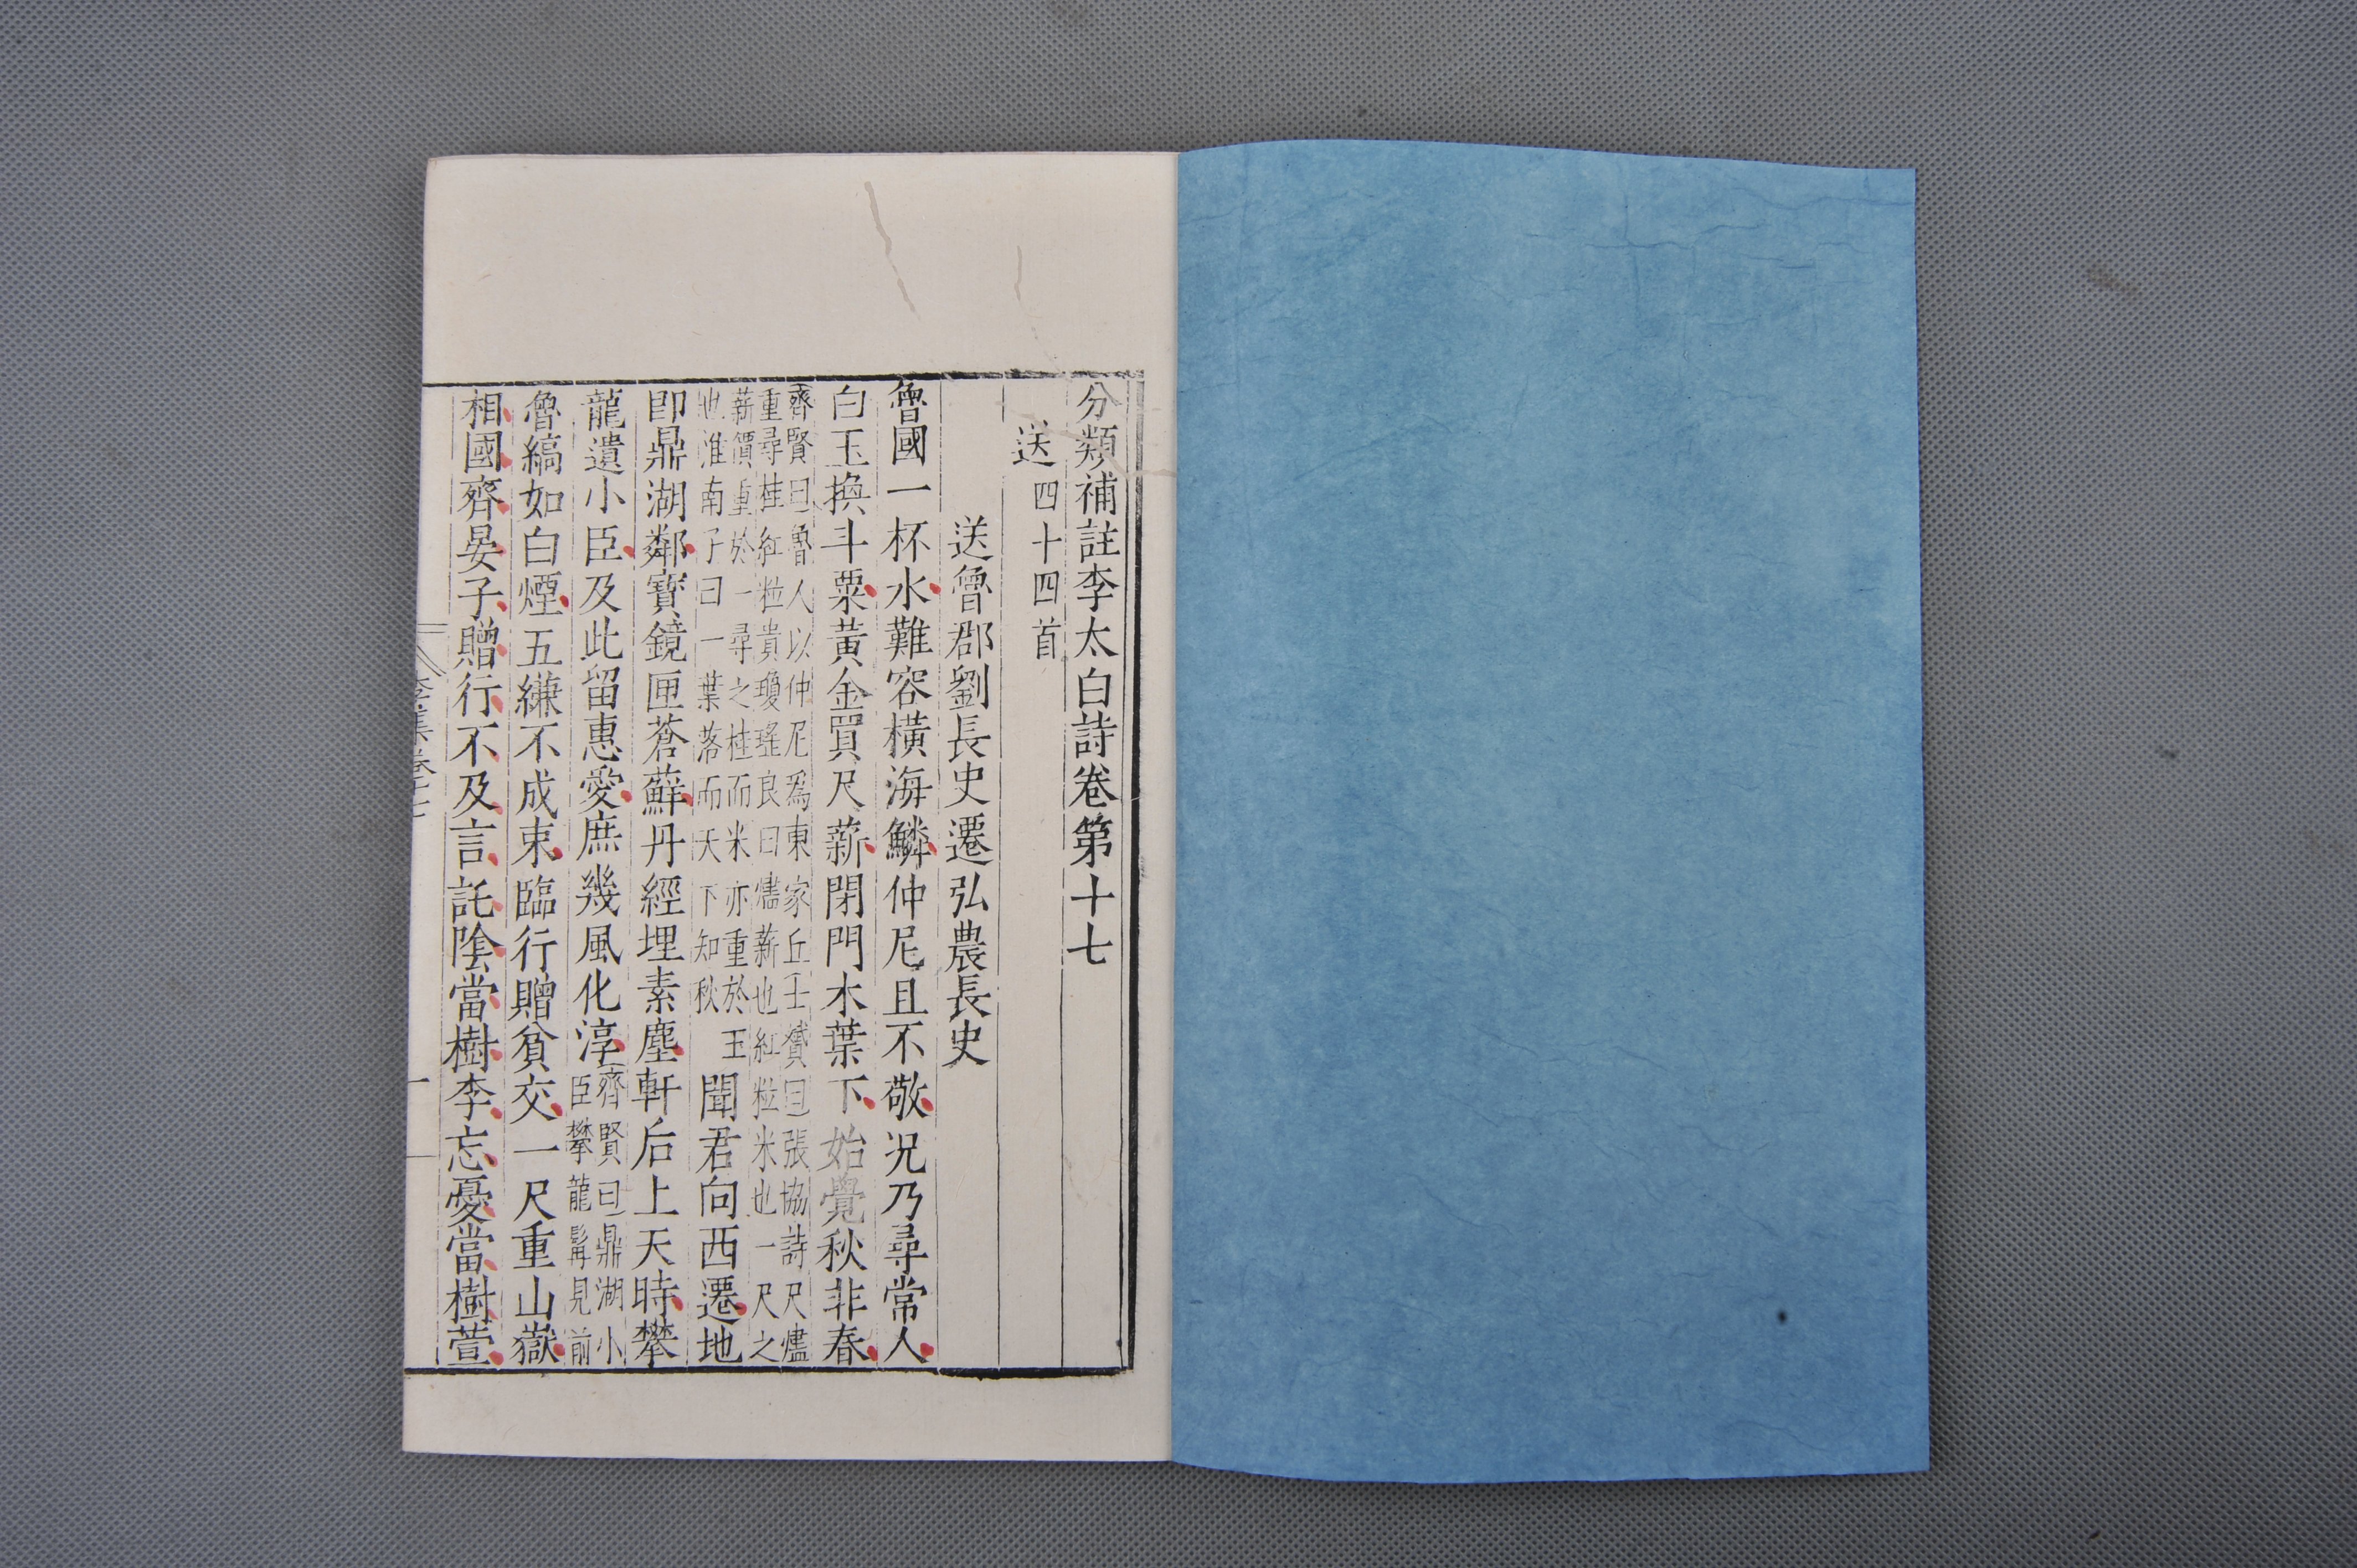 分類補註李太白詩卷第十七
送四十四首
送魯郡劉長史遷弘農長史
魯國一杯水難容橫海鱗仲尼且不敬况乃尋常人
白玉換斗粟黃金買尺薪閉門木葉下始覺秋非春
齊賢曰魯人以仲尼爲東家丘士贇曰張協詩尺燼
重尋桂紅粒貴瓊瑤良曰燼薪也紅粒米也一尺之
薪價重於一尋之桂而米亦重於玉
也淮南子曰一葉落而天下知秋
聞君向西遷地
即鼎湖鄰寶鏡匣蒼蘚丹經埋素塵軒后上天時攀
龍遺小臣及此留惠愛庶幾風化淳
齊賢曰鼎湖小
臣攀龍髯見前
魯縞如白煙五縑不成束臨行贈貧交一尺重山嶽
相國齊晏子贈行不及言託陰當樹李忘憂當樹萱
李集卷十七